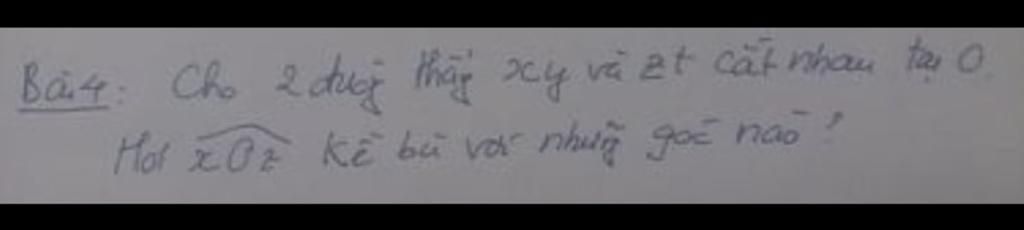 Bài 4: Cho 2 đường thẳng xy và zt cắt nhau tại O.
Hỏi xOz kề bù với những góc nào?